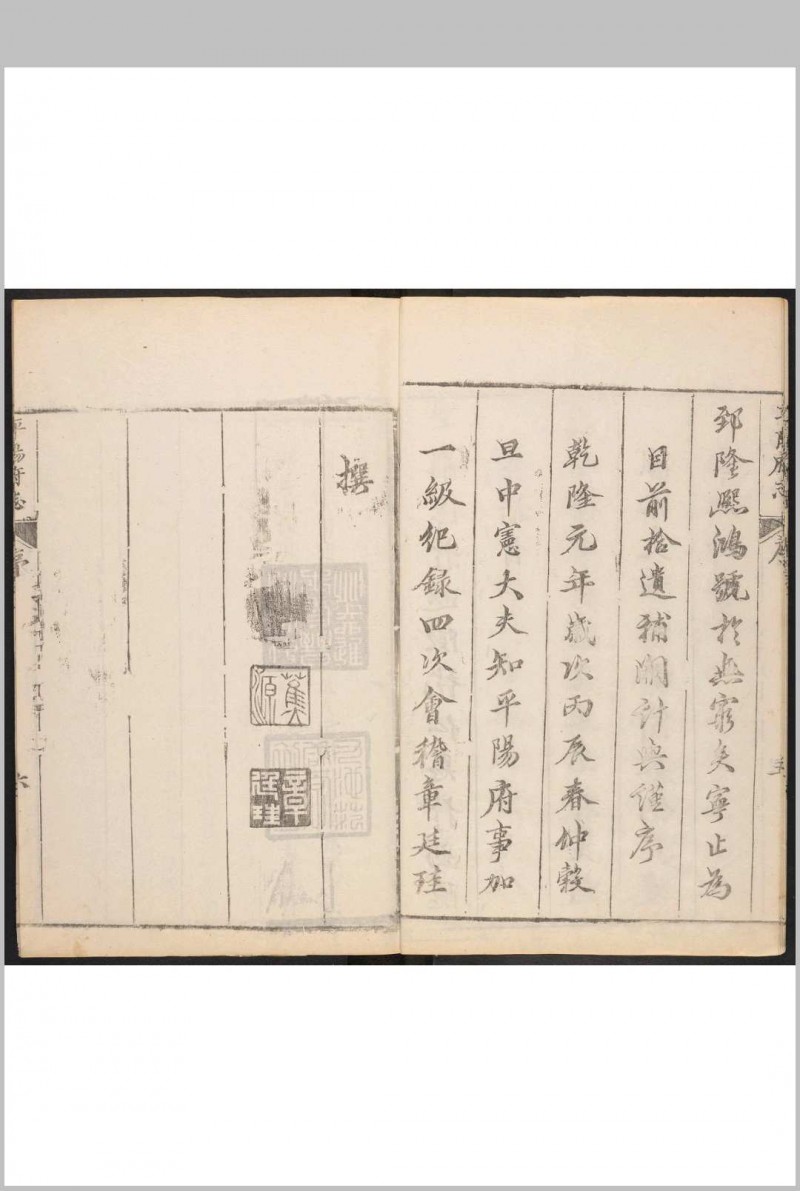 郅隆熙鴻號於無窮矣寧止為
目前拾遺補闕計與謹序
乾隆元年歲次丙辰春仲穀
旦中憲大夫知平陽府事加
一級紀錄四次會稽章廷珪
撰
蕉源
章廷珪
平陽府志
序
六